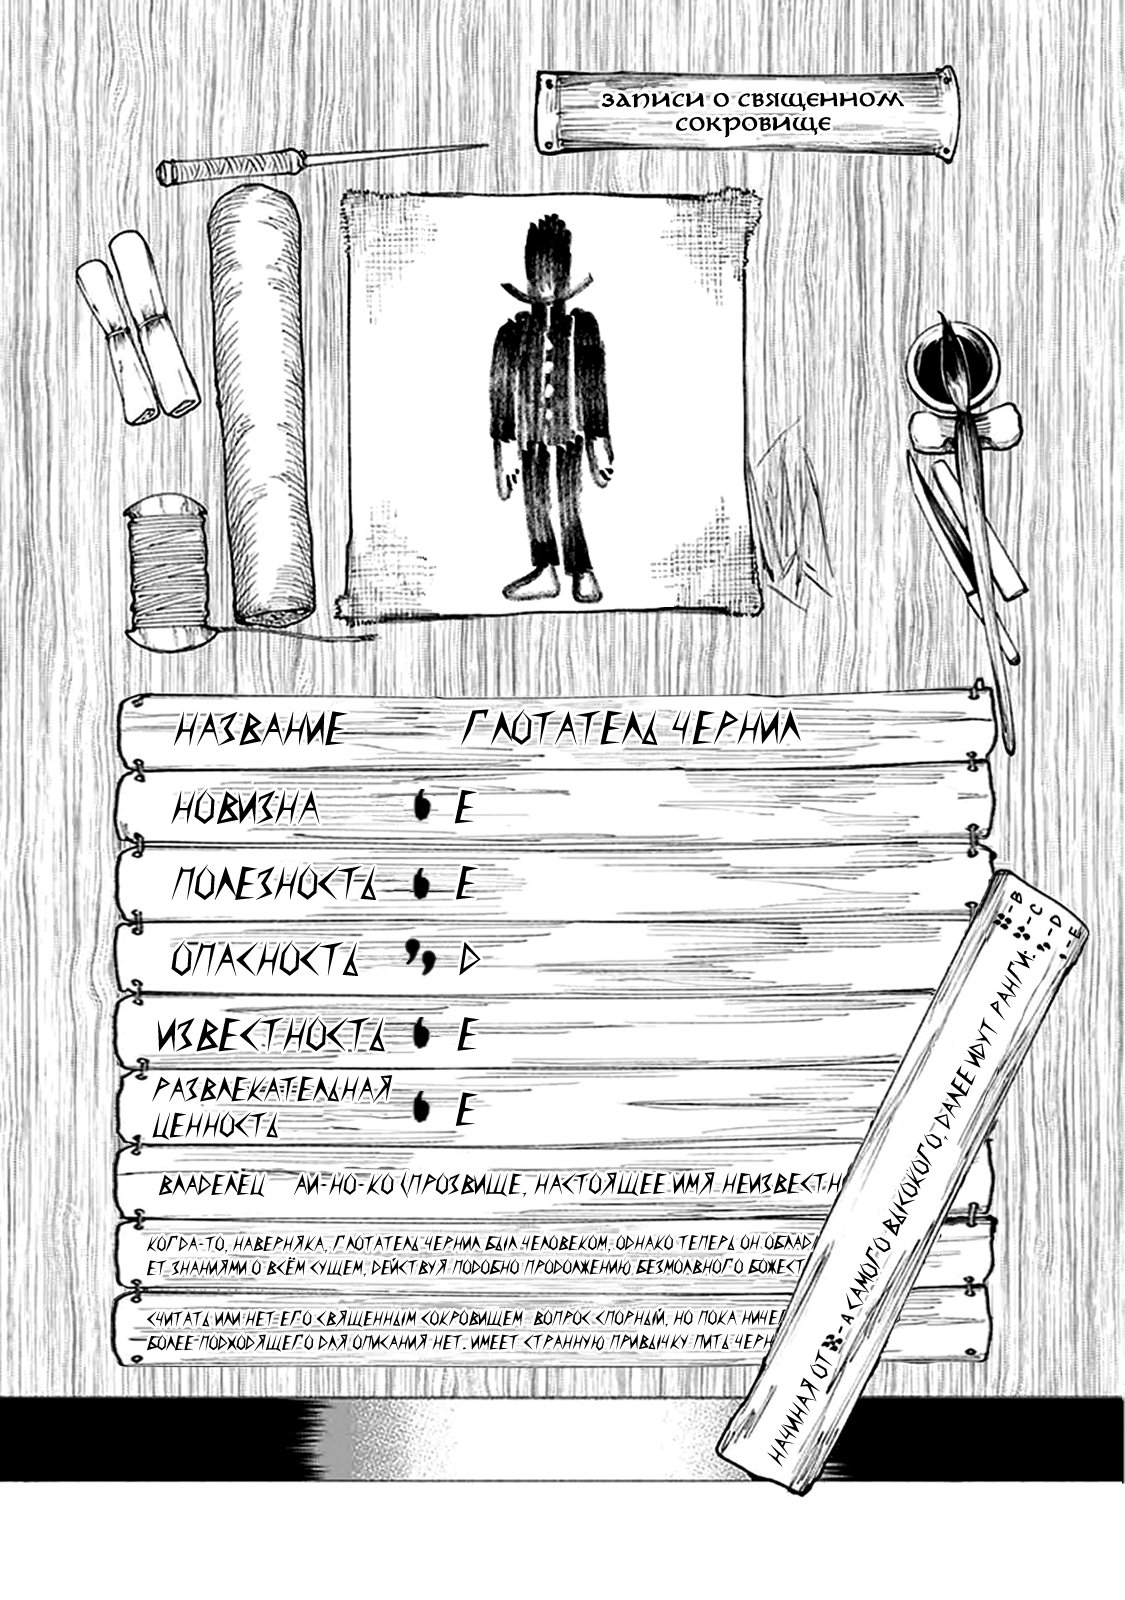 ЗАПИСИ О СВЯЩЕННОМ
СОКРОВИЩЕ
НАЗВАНИЕ ГЛОТАТЕЛЬ ЧЕРНИЛ
НОВИЗНА E
ПОЛЕЗНОСТЬ E
ОПАСНОСТЬ D
ИЗВЕСТНОСТЬ E
РАЗВЛЕКАТЕЛЬНАЯ
ЦЕННОСТЬ E
ВЛАДЕЛЕЦ АЙ-НО-КО (ПРОЗВИЩЕ, НАСТОЯЩЕЕ ИМЯ НЕИЗВЕСТН
КОГДА-ТО, НАВЕРНЯКА, ГЛОТАТЕЛЬ ЧЕРНИЛ БЫЛ ЧЕЛОВЕКОМ, ОДНАКО ТЕПЕРЬ ОН ОБЛАД
ЕТ ЗНАНИЯМИ О ВСЁМ СУЩЕМ, ДЕЙСТВУЯ ПОДОБНО ПРОДОЛЖЕНИЮ БЕЗМОЛВНОГО БОЖЕСТ
СЧИТАТЬ ИЛИ НЕТ ЕГО СВЯЩЕННЫМ СОКРОВИЩЕМ - ВОПРОС СПОРНЫЙ, НО ПОКА НИЧЕ
БОЛЕЕ ПОДХОДЯЩЕГО ДЛЯ ОПИСАНИЯ НЕТ. ИМЕЕТ СТРАННУЮ ПРИВЫЧКУ ПИТЬ ЧЕРН
НАЧИНАЯ ОТ - А САМОГО ВЫСОКОГО, ДАЛЕЕ ИДУТ РАНГИ:
- B
- C
- D
- E